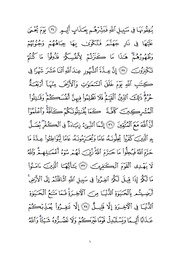 يُنفِقُونَهَا فِي سَبِيلِ اللَّهِ فَبَشِّرْهُم بِعَذَابٍ أَلِيمٍ ﴿٣٤﴾ يَوْمَ يُحْمَىٰ
عَلَيْهَا فِي نَارِ جَهَنَّمَ فَتُكْوَىٰ بِهَا جِبَاهُهُمْ وَجُنُوبُهُمْ
وَظُهُورُهُمْ هَٰذَا مَا كَنَزْتُمْ لِأَنفُسِكُمْ فَذُوقُوا مَا كُنتُمْ
تَكْنِزُونَ ﴿٣٥﴾ إِنَّ عِدَّةَ الشُّهُورِ عِندَ اللَّهِ اثْنَا عَشَرَ شَهْرًا فِي
كِتَٰبِ اللَّهِ يَوْمَ خَلَقَ السَّمَٰوَٰتِ وَالْأَرْضَ مِنْهَا أَرْبَعَةٌ
حُرُمٌ ذَٰلِكَ الدِّينُ الْقَيِّمُ فَلَا تَظْلِمُوا فِيهِنَّ أَنفُسَكُمْ وَقَٰتِلُوا
الْمُشْرِكِينَ كَافَّةً كَمَا يُقَٰتِلُونَكُمْ كَافَّةً وَاعْلَمُوا
أَنَّ اللَّهَ مَعَ الْمُتَّقِينَ ﴿٣٦﴾ إِنَّمَا النَّسِيءُ زِيَادَةٌ فِي الْكُفْرِ يُضَلُّ
بِهِ الَّذِينَ كَفَرُوا يُحِلُّونَهُ عَامًا وَيُحَرِّمُونَهُ عَامًا لِّيُوَاطِئُوا عِدَّةَ مَا
حَرَّمَ اللَّهُ فَيُحِلُّوا مَا حَرَّمَ اللَّهُ زُيِّنَ لَهُمْ سُوءُ أَعْمَٰلِهِمْ وَاللَّهُ
لَا يَهْدِي الْقَوْمَ الْكَٰفِرِينَ ﴿٣٧﴾ يَٰأَيُّهَا الَّذِينَ ءَامَنُوا
مَا لَكُمْ إِذَا قِيلَ لَكُمُ انفِرُوا فِي سَبِيلِ اللَّهِ اثَّاقَلْتُمْ إِلَى الْأَرْضِ
أَرَضِيتُم بِالْحَيَوٰةِ الدُّنْيَا مِنَ الْءَاخِرَةِ فَمَا مَتَٰعُ الْحَيَوٰةِ
الدُّنْيَا فِي الْءَاخِرَةِ إِلَّا قَلِيلٌ ﴿٣٨﴾ إِلَّا تَنفِرُوا يُعَذِّبْكُمْ
عَذَابًا أَلِيمًا وَيَسْتَبْدِلْ قَوْمًا غَيْرَكُمْ وَلَا تَضُرُّوهُ شَيْئًا وَاللَّهُ